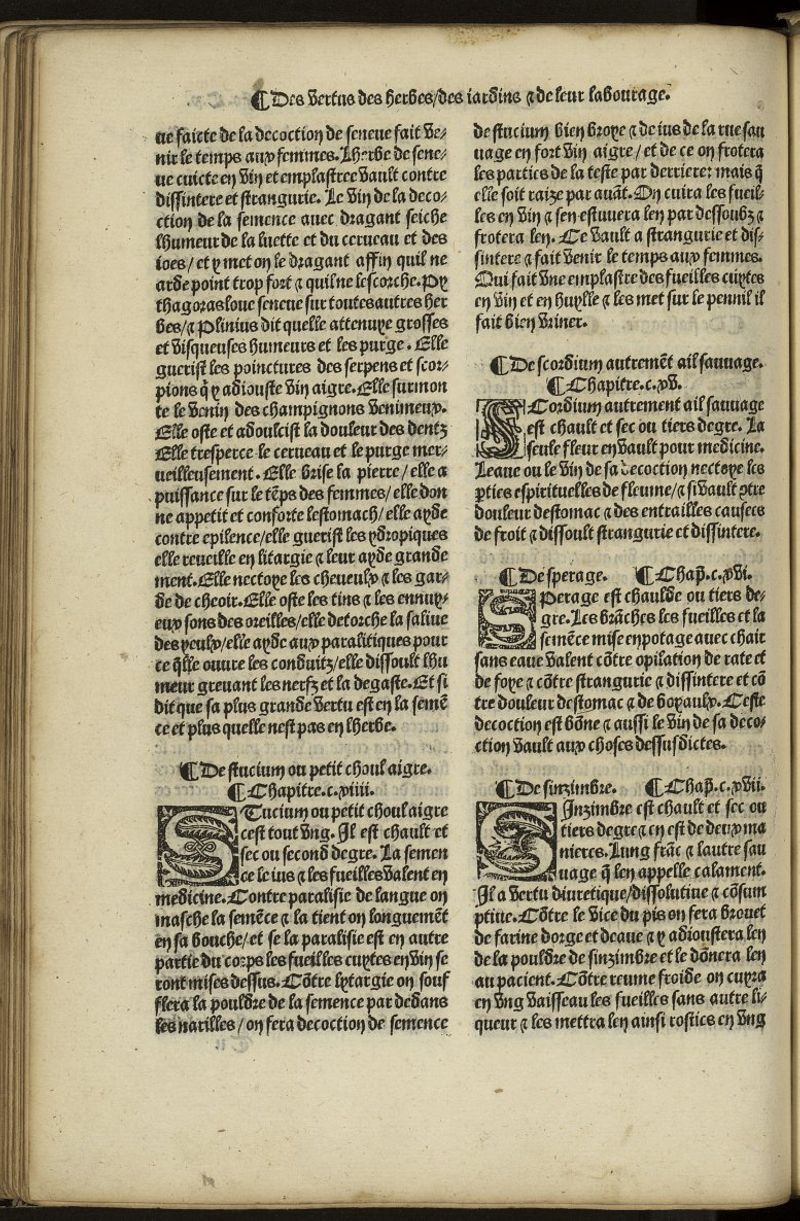 ¶ Des vertus des herbes/des iardins ⁊ de leur labourage.
ue faicte de la decoction de seneue fait ve/
nir le temps aux femmes. Lherbe de sene/
ue cuicte en vin et emplastree vault contre
dissintere et strangurie. Le vin de la deco/
ction de la semence auec dragant seiche
lhumeur de la luette et du cerueau et des
ioes/et y met on le dragant affin quil ne
arde point trop fort ⁊ quil ne lescorche. Py
thagoras loue seneue sur toutes autres her
bes/⁊ Plinius dit quelle attenuye grosses
et visqueuses humeurs et les purge. Elle
guerist les poinctures des serpens et scor/
pions q̄ y adiouste vin aigre. Elle surmon
te le venin des champignons venimeux.
Elle oste et adoulcist la douleur des dentz
Elle tresperce le cerueau et le purge mer/
ueilleusement. Elle brise la pierre/elle a
puissance sur le tēps des femmes/elle don
ne appetit et conforte lestomach/elle ayde
contre epilence/elle guerist les ydropiques
elle reueille en litargie ⁊ leur ayde grande
ment. Elle nectoye les cheueulx ⁊ les gar/
de de cheoir. Elle oste les tins ⁊ les ennuy/
eux sons des oreilles/elle detorche la saliue
des yeulx/elle ayde aux paralitiques pour
ce q̄lle ouure les conduitz/elle dissoult lhu
meur greuant les nerfz et la degaste. Et si
dit que sa plus grande vertu est en la semē
ce et plus quelle nest pas en lherbe.
¶ De stucium ou petit choul aigre.
¶ Chapitre.c.xiiii.
STucium ou petit choul aigre
cest tout vng. Il est chault et
sec ou second degre. La semen
ce le ius ⁊ les fueilles valent en
medicine. Contre paralisie de langue on
masche la semēce ⁊ la tient on longuemēt
en sa bouche/et se la paralisie est en autre
partie du corps les fueilles cuytes en vin se
ront mises dessus. Cōtre lytargie on souf
flera la pouldre de la semence par dedans
les narilles/on fera decoction de semence
de stucium bien broye ⁊ de ius de la rue sau
uage en fort vin aigre/et de ce on frotera
les parties de la teste par derriere: mais q̄
elle soit raize par auāt. On cuira les fueil/
les en vin ⁊ sen estuuera len par dessoubz ⁊
frotera len. Ce vault a strangurie et dis/
sintere ⁊ fait venir le temps aux femmes.
Qui fait vne emplastre des fueilles cuytes
en vin et en huylle ⁊ les met sur le pennil il
fait bien vriner.
¶ De scordium autremēt ail sauuage.
¶ Chapitre.c.xv.
SCordium autrement ail sauuage
est chault et sec ou tiers degre. La
seule fleur en vault pour medicine.
Leaue ou le vin de sa decoction nectoye les
pties espirituelles de fleume/⁊ si vault ꝯtre
douleur destomac ⁊ des entrailles causees
de froit ⁊ dissoult strangurie et dissintere.
¶ De sperage. ¶ Chap̄.c.xvi.
SPerage est chaulde ou tiers de/
gre. Les brāches les fueilles et la
semēce mise en potage auec chair
sans eaue valent cōtre opilation de rate et
de foye ⁊ cōtre strangurie ⁊ dissintere et cō
tre douleur destomac ⁊ de boyaulx. Ceste
decoction est bōne ⁊ aussi le vin de sa deco/
ction vault aux choses dessusdictes.
¶ De sinzimbre. ¶ Chap̄.c.xvii.
SInzimbre est chault et sec ou
tiers degre ⁊ en est de deux ma
nieres. Lung frāc ⁊ lautre sau
uage q̄ len appelle calament.
Il a vertu diuretique/dissolutiue ⁊ cōsum
ptiue. Cōtre le vice du pis on fera brouet
de farine dorge et deaue ⁊ y adioustera len
de la pouldre de sinzimbre et le dōnera len
au pacient. Cōtre reume froide on cuyra
en vng vaisseau les fueilles sans autre li/
queur ⁊ les mettra len ainsi rosties en vng